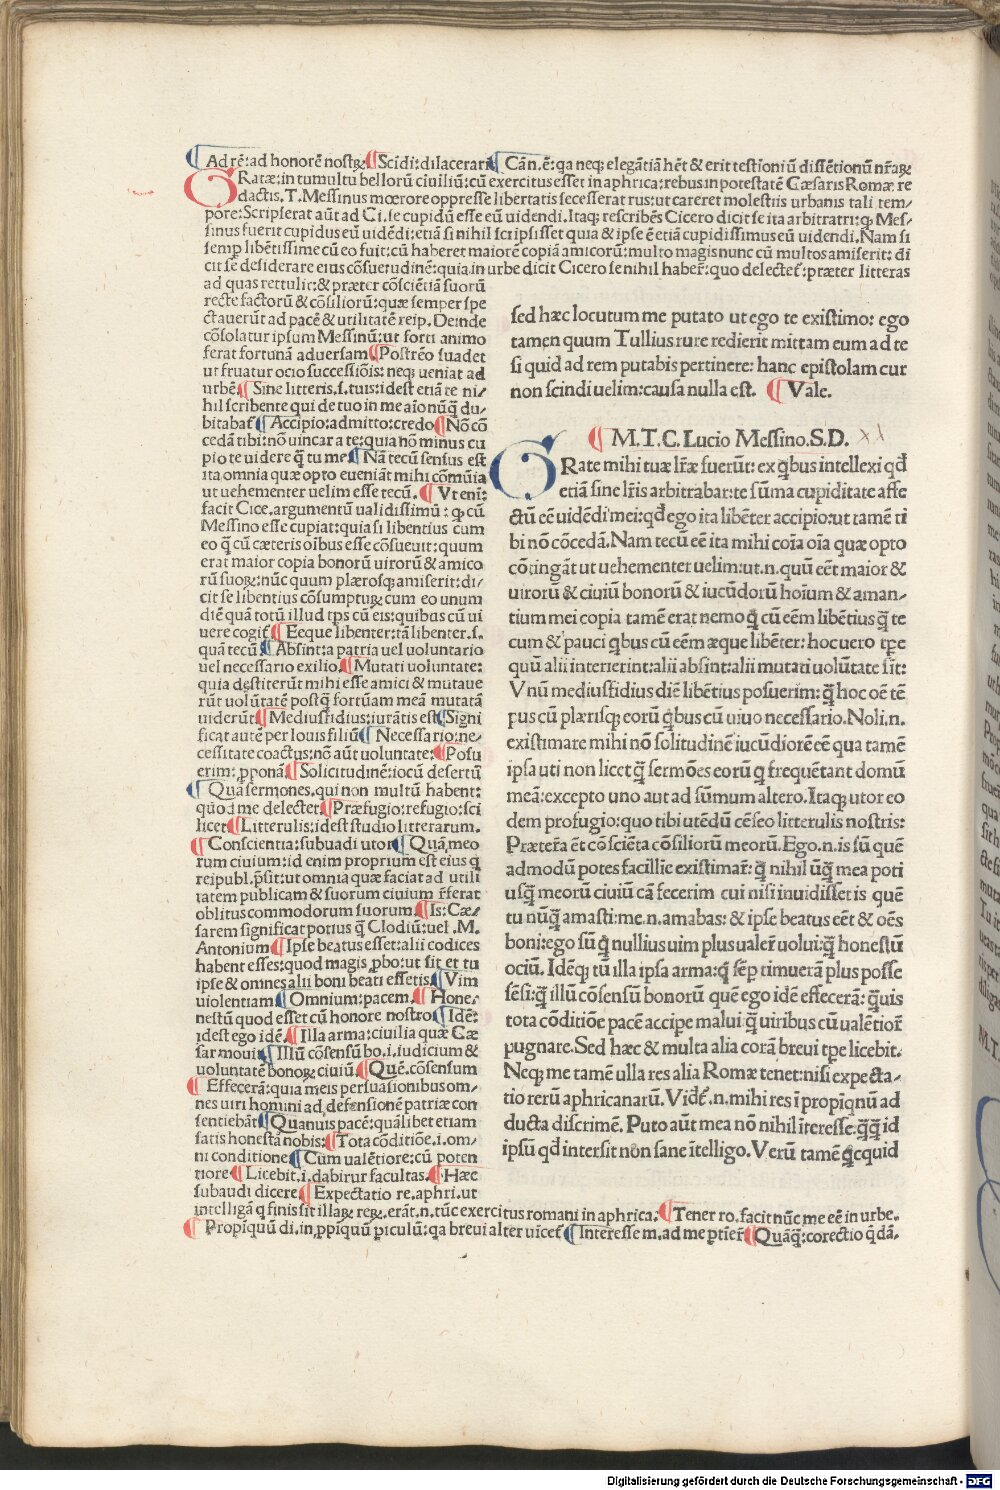 Ad rē: ad honorē nostꝝ ¶ Scidi: dilacerari ¶ Cān. ē: qa neqꝫ elegātiā hēt & erit testioniū dissētionū nr̄aꝝ
GRatæ: in tumultu bellorū ciuiliū: cū exercitus esset in aphrica: rebus in potestatē Cæsaris Romæ re
dactis. T. Messinus mœrore oppresse libertatis secesserat rus: ut careret molestiis urbanis tali tem/
pore: Scripserat aūt ad Ci. se cupidū esse eū uidendi. Itaqꝫ rescribēs Cicero dicit se ita arbitratri: qꝫ Mes/
sinus fuerit cupidus eū uidēdi: etiā si nihil scripsisset quia & ipse ē etiā cupidissimus eū uidendi. Nam si
semp libētissime cū eo fuit: cū haberet maiorē copiā amicorū: multo magis nunc cū multos amiserit: di
cit se desiderare eius cōsuetudinē: quia in urbe dicit Cicero se nihil haberꝭ quo delectetꝭ: præter litteras
ad quas rettulit: & præter cōsciētiā suorū
recte factorū & cōsiliorū: quæ semper spe
ctauerūt ad pacē & utilitatē reip. Deinde
cōsolatur ipsum Messinū: ut forti animo
ferat fortunā aduersam ¶ Postrēo suadet
ut fruatur ocio successiōis: neqꝫ ueniat ad
urbē. ¶ Sine litteris. s. tuis: idest etiā te ni/
hil scribente qui de tuo in me aīo nūqꝫ du/
bitabaꝭ ¶ Accipio: admitto: credo ¶ Nō cō
cedā tibi: nō uincar a te: quia nō minus cu
pio te uidere q̄ tu me ¶ Nā tecū sensus est
ita omnia quæ opto eueniāt mihi cōmūia
ut uehementer uelim esse tecū. ¶ Vt enī:
facit Cice. argumentū ualidissimū: ꝙ cū
Messino esse cupiat: quia si libentius cum
eo q̄ cū cæteris oībus esse cōsueuit: quum
erat maior copia bonorū uirorū & amico
rū suoꝝ: nūc quum plærosqꝫ amiserit: di/
cit se libentius cōsumpturꝝ cum eo unum
diē quā totū illud tp̄s cū eis: quibus cū ui
uere cogiꝭ ¶ Eeque libenter: tā libenter. s.
quā tecū ¶ Absint: a patria uel uoluntario
uel necessario exilio. ¶ Mutati uoluntate:
quia destiterūt mihi esse amici & mutaue
rūt uolūtatē postq̄ fortūam meā mutatā
uiderūt ¶ Mediusfidius: iurātis est ¶ Signi
ficat autē per Iouis filiū ¶ Necessario: ne/
cessitate coactus: nō aūt uoluntate: ¶ Posu
erim: ꝓponā ¶ Solicitudinē: iocū desertū
¶ Qua sermones. qui non multū habent:
quōd me delectet ¶ Præfugio: refugio: sci
licet ¶ Litterulis: idest studio litterarum.
¶ Conscientia: subuadi utor ¶ Quā, meo
rum ciuium: id enim proprium est eius q̄
reipubl. p̄sit: ut omnia quæ faciat ad utili
tatem publicam & suorum ciuium r̄ferat
oblitus commodorum suorum ¶ Is: Cæ/
sarem significat potius q̄ Clodiū: uel .M.
Antonium ¶ Ipse beatus esset: alii codices
habent esses: quod magis ꝓbo: ut sit et tu
ipse & omnes alii boni beati essetis ¶ Vim
uiolentiam ¶ Omnium: pacem. ¶ Hone/
nestū quod esset cū honore nostro ¶ Idē:
idest ego idē. ¶ Illa arma: ciuilia quæ Cæ
sar mouit ¶ Illū cōsensū bo. i. iudicium &
uoluntatē bonoꝝ ciuiū. ¶ Quē. cōsensum
¶ Effecerā: quia meis persuasionibus om/
nes uiri homini ad defensionē patriæ con
sentiebāt ¶ Quanuis pacē: quālibet etiam
satis honestā nobis: ¶ Tota cōditiōe. i. om/
ni conditione ¶ Cum ualētiore: cū poten
tiore ¶ Licebit. i. dabitur facultas. ¶ Hæc
subaudi dicere ¶ Expectatio re. aphri. ut
intelligā q̄ finis sit illaꝝ reꝝ. erāt. n. tūc exercitus romani in aphrica. ¶ Tener ro. facit nūc me eē in urbe.
¶ Propīquū di. in ꝓpīquū piculū: qa breui alter uiceꝭ ¶ Interesse m. ad me ptīeꝭ ¶ Quāqꝫ: corectio q̄dā.
sed hæc locutum me putato ut ego te existimo: ego
tamen quum Tullius rure redierit mittam eum ad te
si quid ad rem putabis pertinere: hanc epistolam cur
non scindi uelim: causa nulla est. ¶ Vale.
¶ M. T. C. Lucio Messino. S. D. xl
GRate mihi tuæ lr̄æ fuerūt: ex q̄bus intellexi qd̄
etiā sine lr̄is arbitrabar: te sūma cupiditate affe
ctū eē uidēdi mei: qd̄ ego ita libēter accipio: ut tamē ti
bi nō cōcedā. Nam tecū eē ita mihi coīa oīa quæ opto
cōtingāt ut uehementer uelim: ut. n. quū eēt maior &
uirorū & ciuiū bonorū & iucūdorū hoīum & aman/
tium mei copia tamē erat nemo q̄ cū eēm libētius q̄ te
cum & pauci q̄bus cū eēm æque libēter: hoc uero tp̄e
quū alii interierint: alii absint: alii mutati uolūtate sīt:
Vnū mediusfidius diē libētius posuerim: q̄ hoc oē tē
pus cū plærisqꝫ eorū q̄bus cū uiuo necessario. Noli. n.
existimare mihi nō solitudinē iucūdiorē eē qua tamē
ipsa uti non licet q̄ sermōes eorū q̄ frequētant domū
meā: excepto uno aut ad sūmum altero. Itaqꝫ utor eo
dem profugio: quo tibi utēdū cēseo litterulis nostris:
Præterꝭa ēt cōsciēta cōsiliorū meorū. Ego. n. is sū quē
admodū potes facillīe existimarꝭ: q̄ nihil ūq̄ mea poti
usq̄ meorū ciuiū cā fecerim cui nisi inuidisset is quē
tu nūq̄ amasti: me. n. amabas: & ipse beatus eēt & oēs
boni: ego sū q̄ nullius uim plus ualerꝭ uolui: q̄ honestū
ociū. Idēqꝫ tū illa ipsa arma: q̄ sēp timuerā plus posse
sēsi: q̄ illū cōsensū bonorū quē ego idē effecerā: q̄uis
tota cōditiōe pacē accipe malui q̄ uiribus cū ualētiorꝭ
pugnare. Sed hæc & multa alia corā breui tp̄e licebit.
Neqꝫ me tamē ulla res alia Romæ tenet: nisi expecta/
tio rerū aphricanarū. Videꝭ. n. mihi res ī propīqnū ad
ducta discrimē. Puto aūt mea nō nihil īteresse: q̄q̄ id
ipsū qd̄ intersit non sane ītelligo. Verū tamē q̄cquid
Digitalisierung gefördert durch die Deutsche Forschungsgemeinschaft - DFG